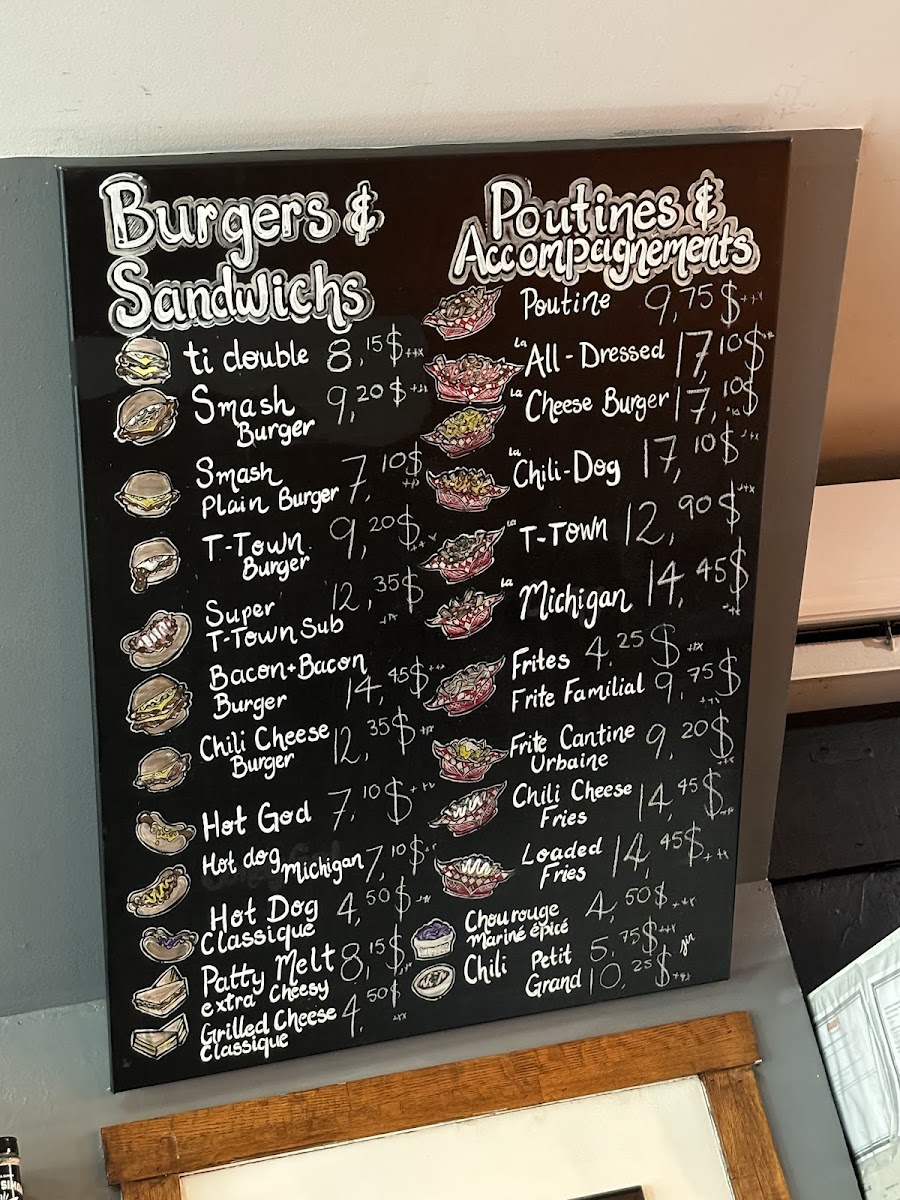 Burgers &
Sandwichs
ti double 8,15$
Smash 9,20$
Burger
Smash 7,10$
Plain Burger
T-Town 9,20$
Burger
Super 12,35$
T-Town Sub
Bacon+Bacon
Burger 14,45$
Chili Cheese 12,35$
Burger
Hot God 7,10$
Hot dog Michigan 7,10$
Hot Dog 4,50$
Classique
Patty Melt 8,15$
extra Cheesy
Grilled Cheese 4,50$
Classique
Poutines &
Accompagnements
Poutine 9,75$
La All-Dressed 17,10$
La Cheese Burger 17,10$
La Chili-Dog 17,10$
La T-Town 12,90$
La Michigan 14,45$
Frites 4,25$
Frite Familial 9,75$
Frite Cantine 9,20$
Urbaine
Chili Cheese 14,45$
Fries
Loaded 14,45$
Fries
Chou rouge 4,50$
mariné épicé
Chili Petit 5,75$
Grand 10,25$